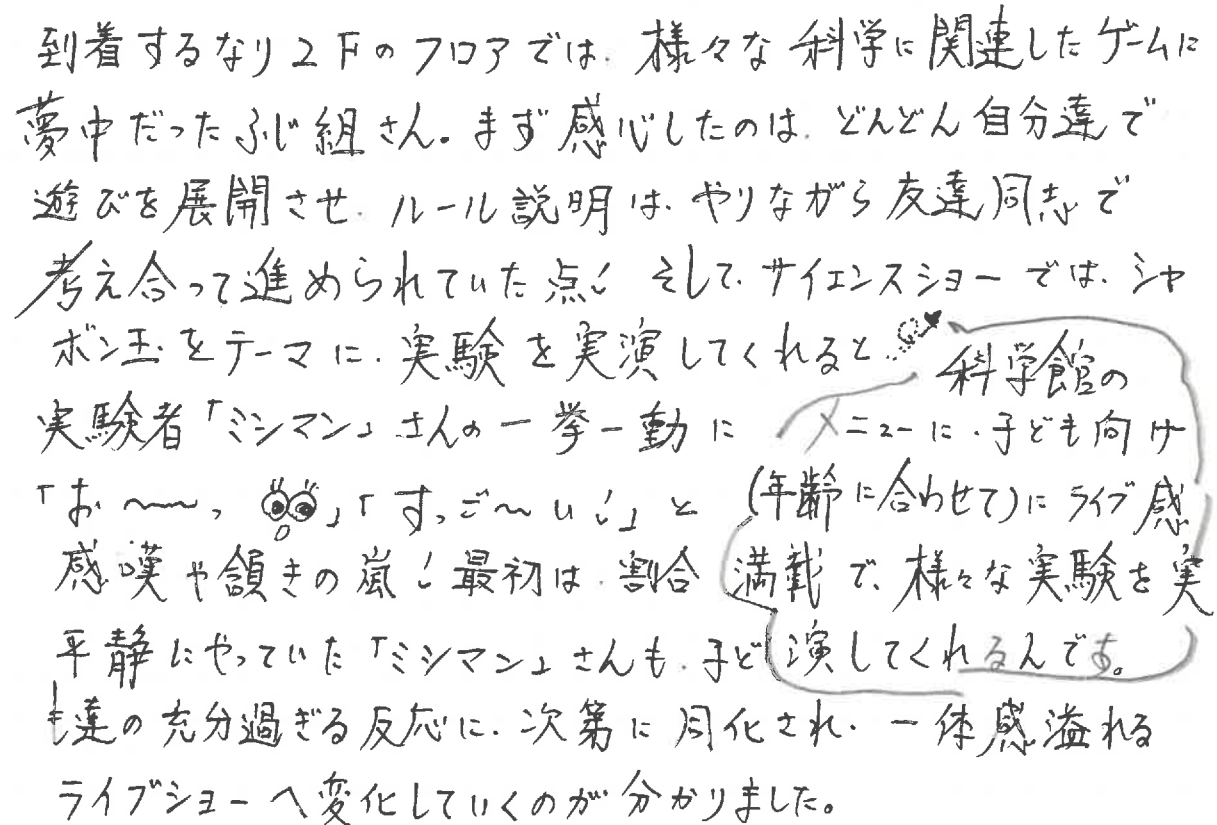 到着するなり2Fのフロアでは、様々な科学に関連したゲームに
夢中だったふじ組さん。まず感心したのは、どんどん自分達で
遊びを展開させ、ルール説明は、やりながら友達同志で
考え合って進められていた点! そして、サイエンスショーでは、シャ
ボン玉をテーマに、実験を実演してくれると…
実験者「ミシマン」さんの一挙一動に
「お〜〜っ」「すっご〜い!」と
感嘆や頷きの嵐! 最初は、割合
平静にやっていた「ミシマン」さんも、子ど
も達の充分過ぎる反応に、次第に同化され、一体感溢れる
ライブショーへ変化していくのが分かりました。
科学館の
メニューに、子ども向け
(年齢に合わせて)にライブ感
満載で、様々な実験を実
演してくれるんです。